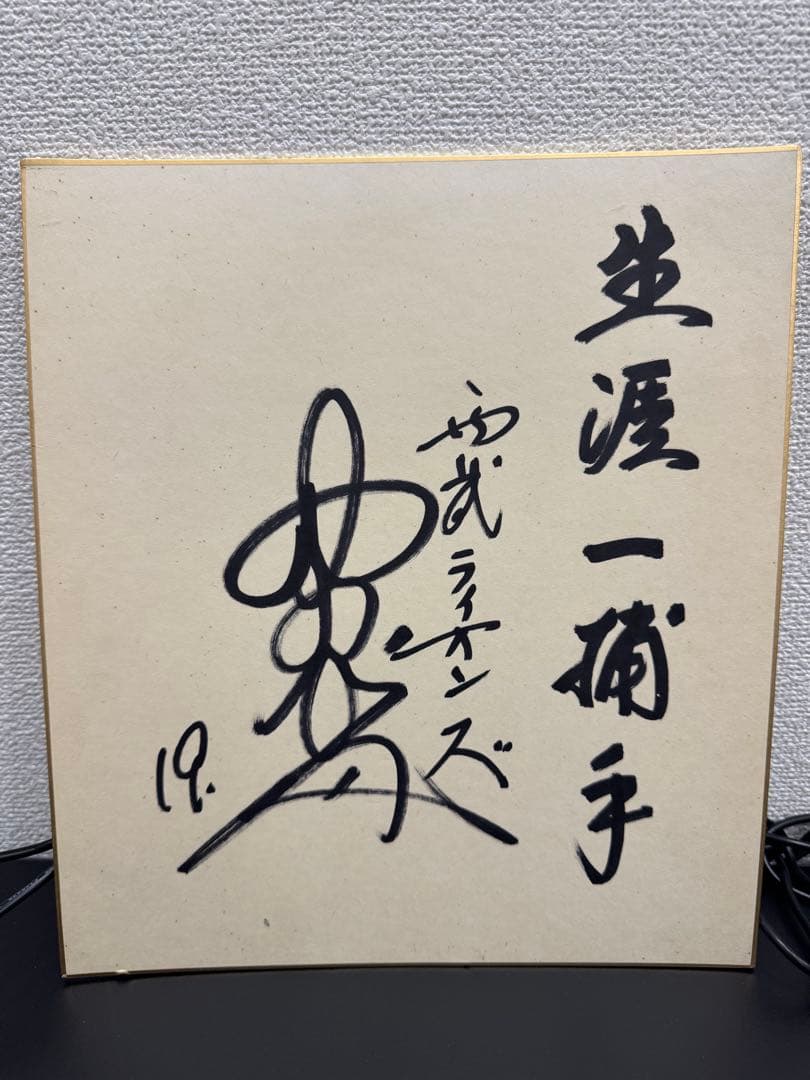 生涯一捕手
西武ライオンズ
19.